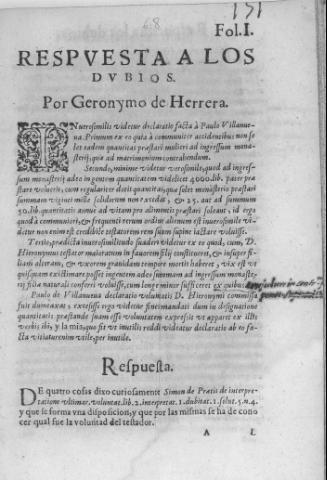 68
151
Fol.I.
RESPVESTA A LOS
DVBIOS.
Por Geronymo de Herrera.
INverosimilis videtur declaratio facta à Paulo Villanue-
na. Primum ex eo quia à communiter accidentibus non so-
let tadem quantitas præstari mulieri ad ingressum mona-
sterij, quæ ad matrimonium contrahendum.
Secundo, minime videtur verosimile, quod ad ingres-
sum monasterij adeo in gentem quantitatem videlicet 4000.lib. pater præ-
stare voluerit, cum regulariter dotis quantitas, quæ solet monasterijs præstari
summam viginti mille solidorum non excedat, & 25. aut ad summum
50.lib. quantitatis annuæ ad vitam pro alimentis præstari soleant, id ergo
quod à communiter, & frequenti rerum ordine alienum est inverosimile vi-
detur non enim est credibile testatorem rem suam supine iactare voluisse.
Tertio, prædicta inverosimilitudo suaderi videtur ex eo quod, cum, D.
Hieronymus testator maioratum in fauorem filij constitueret, & insuper fi-
liam alteram, & vxorem grauidam tempore mortis haberet, vix est vt
quisquam existimare posset ingentem adeo summam ad ingressum monaste-
rij filiæ naturali conferri voluisse, cum longe minor sufficeret ex quibus
Paulo de Villanueua declaratio voluntatis D. Hieronymi commissa
fuit duntaxat, excessisse ergo videtur fines mandati dum in designatione
quantitatis præstandæ suam esse voluntatem expressit vt apparet ex illis
verbis ibi, y la mia, quo fit vt inutilis reddi videatur declaratio ab eo fa-
cta vitiaturemin vtile per inutile.
Respuesta.
DE quatro cosas dixo curiosamente Simon de Prætis de interpre-
tatione vltimar. voluntat. lib. 2. interpretat. 1. dubitat. 1. solut. 5. n. 4.
y que se forma vna disposicion, y que por las mismas se ha de cono-
cer qual fue la voluntad del testador.
A